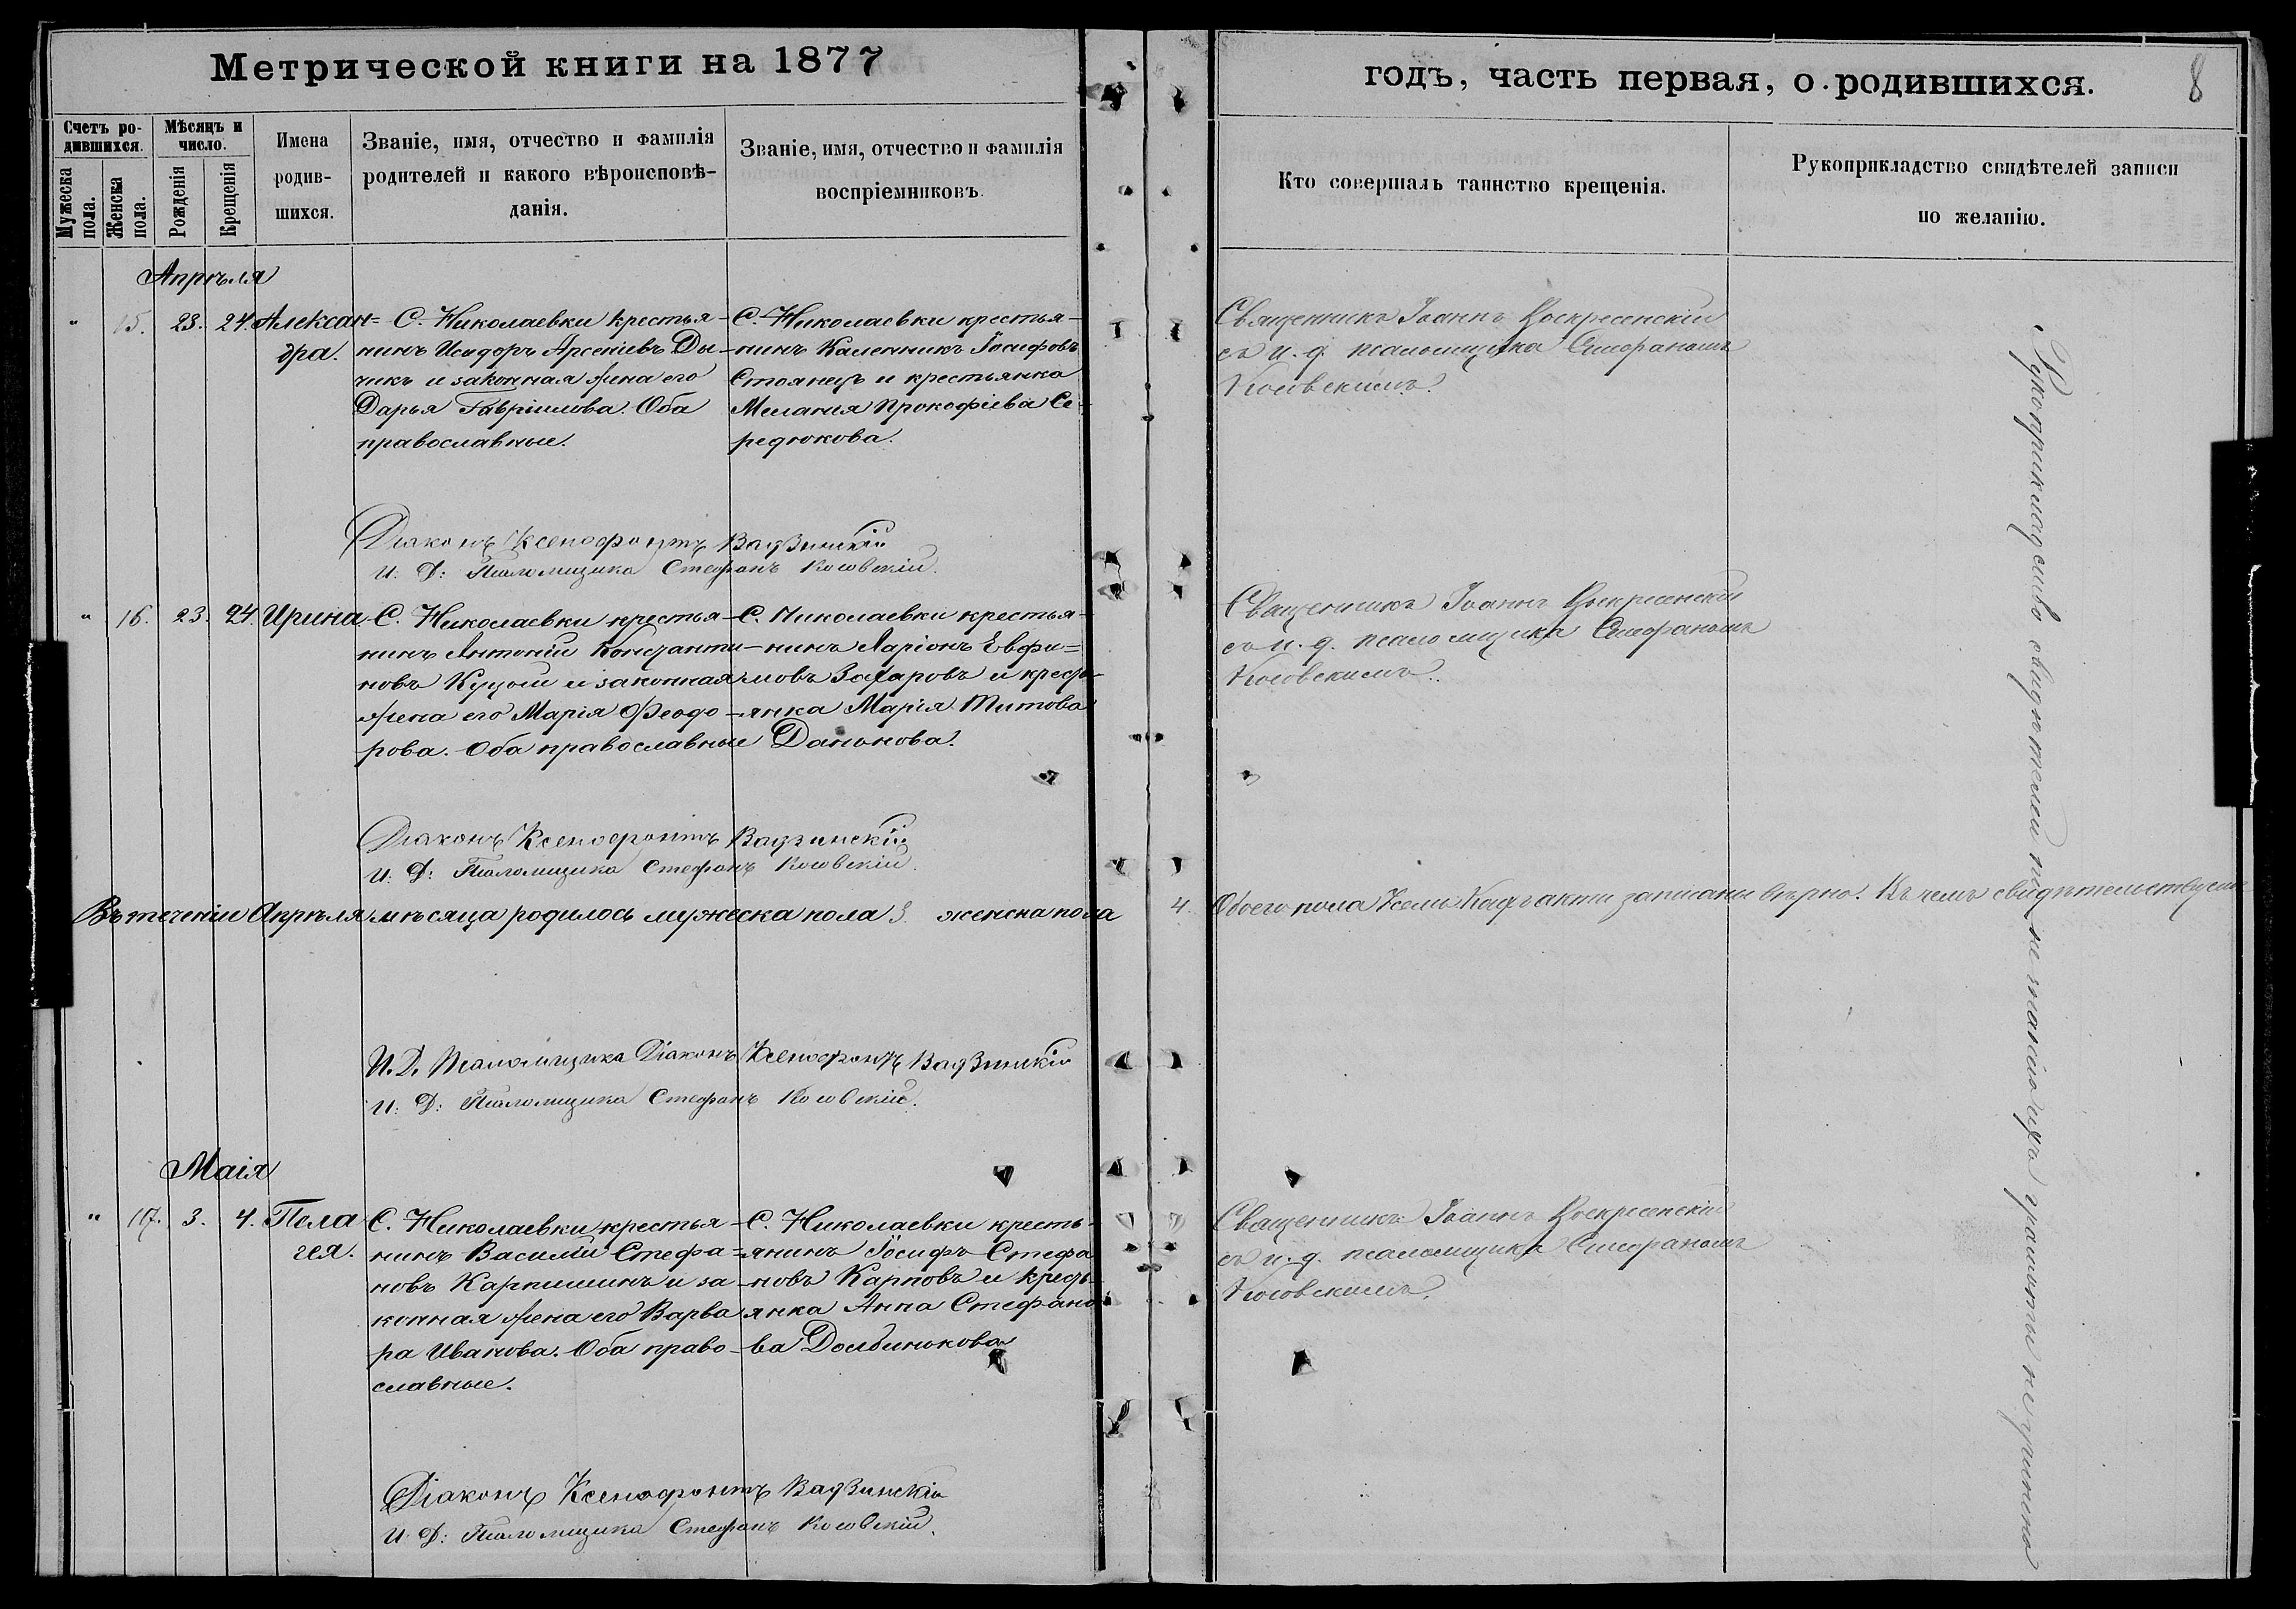 Метрической книги на 1877
годъ, часть первая, о родившихся.
8
Счетъ ро-
дившихся.
Мужеска
пола.
Женска
пола.
Мѣсяцъ и
число.
Рожденія
Крещенія
Имена
родив-
шихся.
Званіе, имя, отчество и фамилія
родителей и какого вѣроисповѣ-
данія.
Званіе, имя, отчество и фамилія
воспріемниковъ.
Кто совершалъ таинство крещенія.
Рукоприкладство свидѣтелей записи
по желанію.
Апрѣля
" 15. 23. 24. Алексан=
дра.
С. Николаевки крестья-
нинъ Исидоръ Арсеніевъ Ды-
чикъ и законная жена его
Дарья Гавріилова. Оба
православные.
С. Николаевки крестья-
нинъ Каленникъ Іосифовъ
Стоянецъ и крестьянка
Меланія Прокофіева Се-
редюкова.
Священникъ Іоаннъ Воскресенскій
съ и. д. псаломщика Стефаномъ
Косовскимъ.
Діаконъ Ксенофонтъ Вадзинскій
И: Д: Псаломщика Стефанъ Косовскій.
" 16. 23. 24. Ирина
С. Николаевки крестья-
нинъ Антоній Константи-
новъ Куцый и законная
жена его Марія Феодо-
рова. Оба православные
С. Николаевки крестья-
нинъ Ларіонъ Евфи=
мовъ Захаровъ и кресть-
янка Марія Титова
Данькова.
Священникъ Іоаннъ Воскресенскій
съ и. д. псаломщика Стефаномъ
Косовскимъ.
Діаконъ Ксенофонтъ Вадзинскій
И: Д: Псаломщика Стефанъ Косовскій.
Въ теченіи Апрѣля мѣсяца родилось мужеска пола 3. женска пола 4. Обоего пола семь. Акты записаны вѣрно. Въ чемъ свидѣтельствуемъ
И. Д. Псаломщика Діаконъ Ксенофонтъ Вадзинскій
И: Д: Псаломщика Стефанъ Косовскій.
Маія
" 17. 3. 4. Пела
гея.
С. Николаевки крестья-
нинъ Василій Стефа=
новъ Карпишинъ и за-
конная жена его Варва
ра Иванова. Оба право-
славные.
С. Николаевки кресть-
янинъ Іосифъ Стефа
новъ Карповъ и кресть-
янка Анна Стефано
ва Долбинькова
Священникъ Іоаннъ Воскресенскій
съ и. д. псаломщика Стефаномъ
Косовскимъ.
Діаконъ Ксенофонтъ Вадзинскій
И: Д: Псаломщика Стефанъ Косовскій.
Рукоприкладство свидѣтелей по незнанію ихъ грамоты не учинено